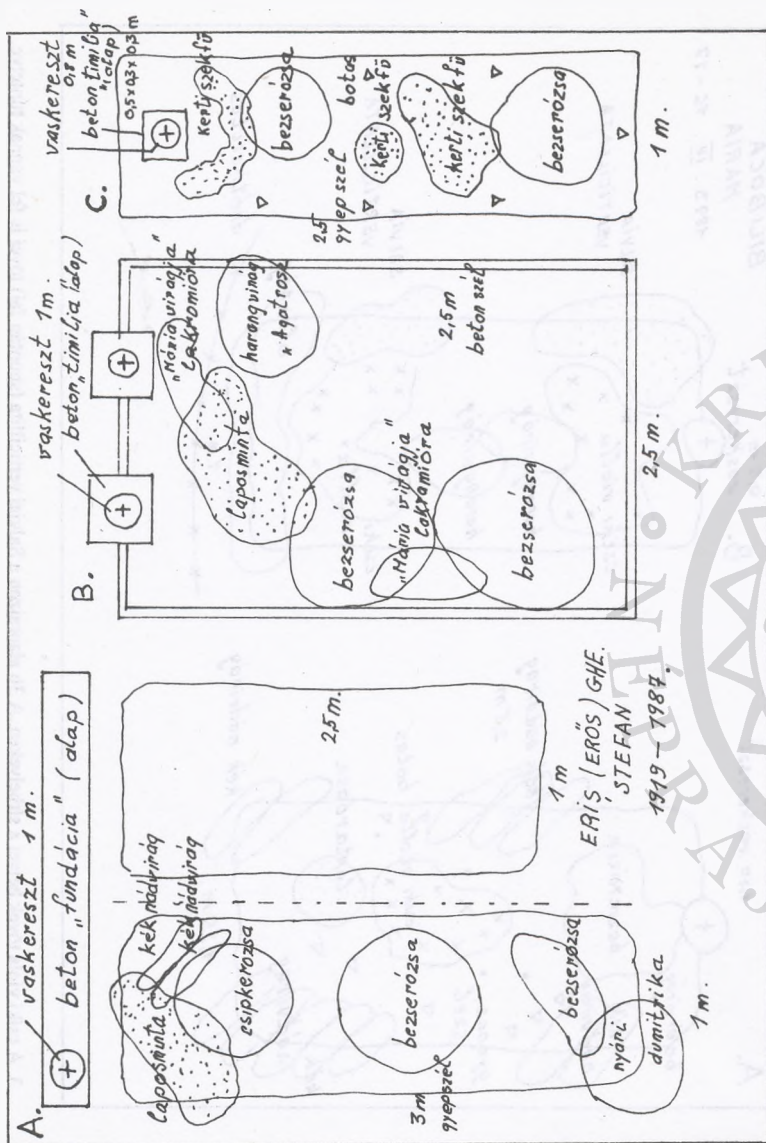 A.
vaskereszt 1 m.
beton „fundácia" (alap)
laposminta
kék nádvirág
kék nádvirág
csipkerózsa
bezserózsa
bezserózsa
nyári
dumitrika
3 m
gyepszél
1 m.
25 m.
1 m
ERIȘ (ERŐS) GHE.
ȘTEFAN
1919 – 1987.
B.
vaskereszt 1 m.
beton „timilia" (alap)
„Mária virágja"
Lakrămióra
laposminta
harangvirág
bezserózsa
„Mária virágja"
Lakrămióra
bezserózsa
2,5 m
beton szél
2,5 m.
C.
vaskereszt
0,8 m
beton „timilia"
(alap)
0,5 x 0,3 x 0,3 m
kerti szekfű
bezserózsa
25
gyepszél
botos
kerti szekfű
kerti szekfű
bezserózsa
1 m.
NÉPRAJZ
KR